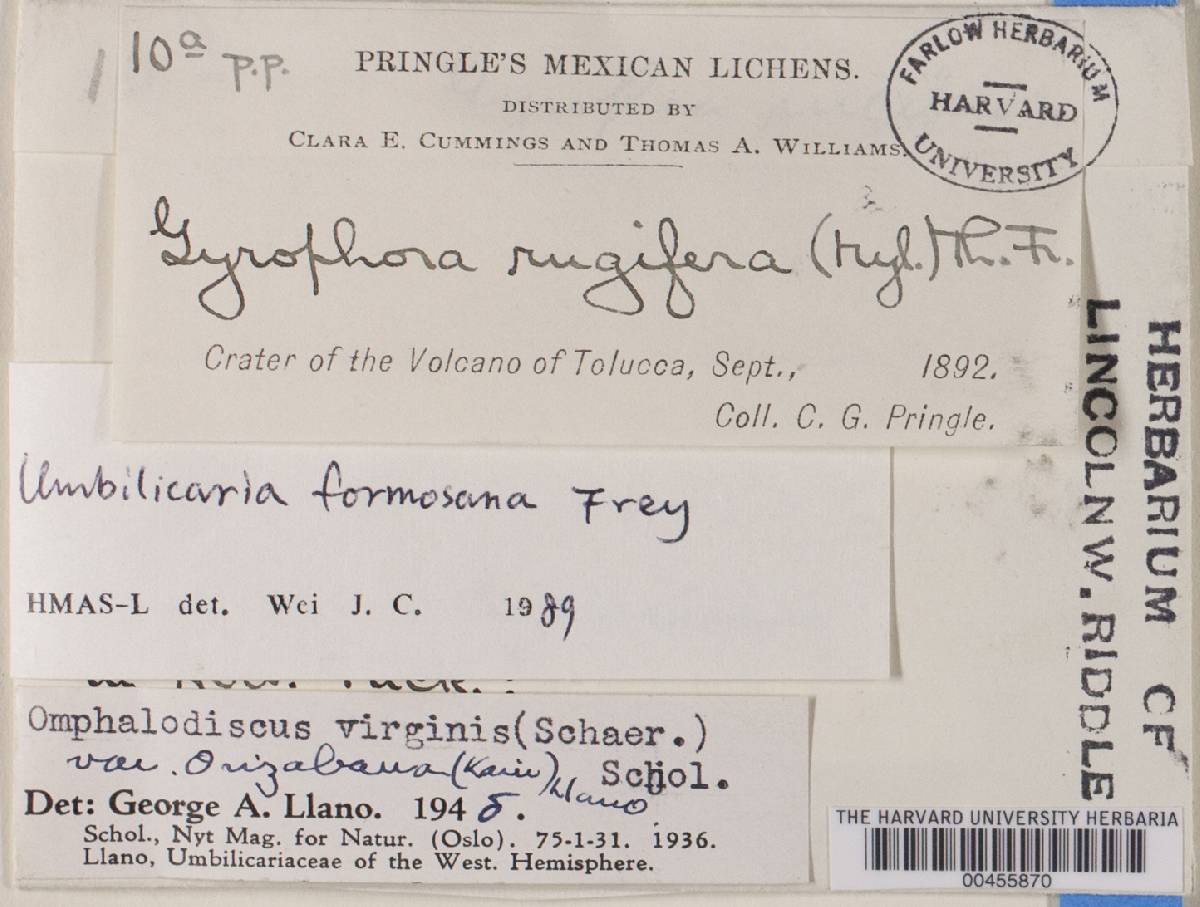 10a p.p.
PRINGLE'S MEXICAN LICHENS.
DISTRIBUTED BY
CLARA E. CUMMINGS AND THOMAS A. WILLIAMS.
FARLOW HERBARIUM
HARVARD
UNIVERSITY
Gyrophora rugifera (Nyl.) Th. Fr.
Crater of the Volcano of Tolucca, Sept., 1892.
Coll. C. G. Pringle.
HERBARIUM OF
LINCOLN W. RIDDLE
Umbilicaria formosana Frey
HMAS-L det. Wei J. C. 1989
Omphalodiscus virginis (Schaer.)
var. Orizabana (Kariu) Llano Schol.
Det: George A. Llano. 1948.
Schol., Nyt Mag. for Natur. (Oslo). 75-1-31. 1936.
Llano, Umbilicariaceae of the West. Hemisphere.
THE HARVARD UNIVERSITY HERBARIA
00455870